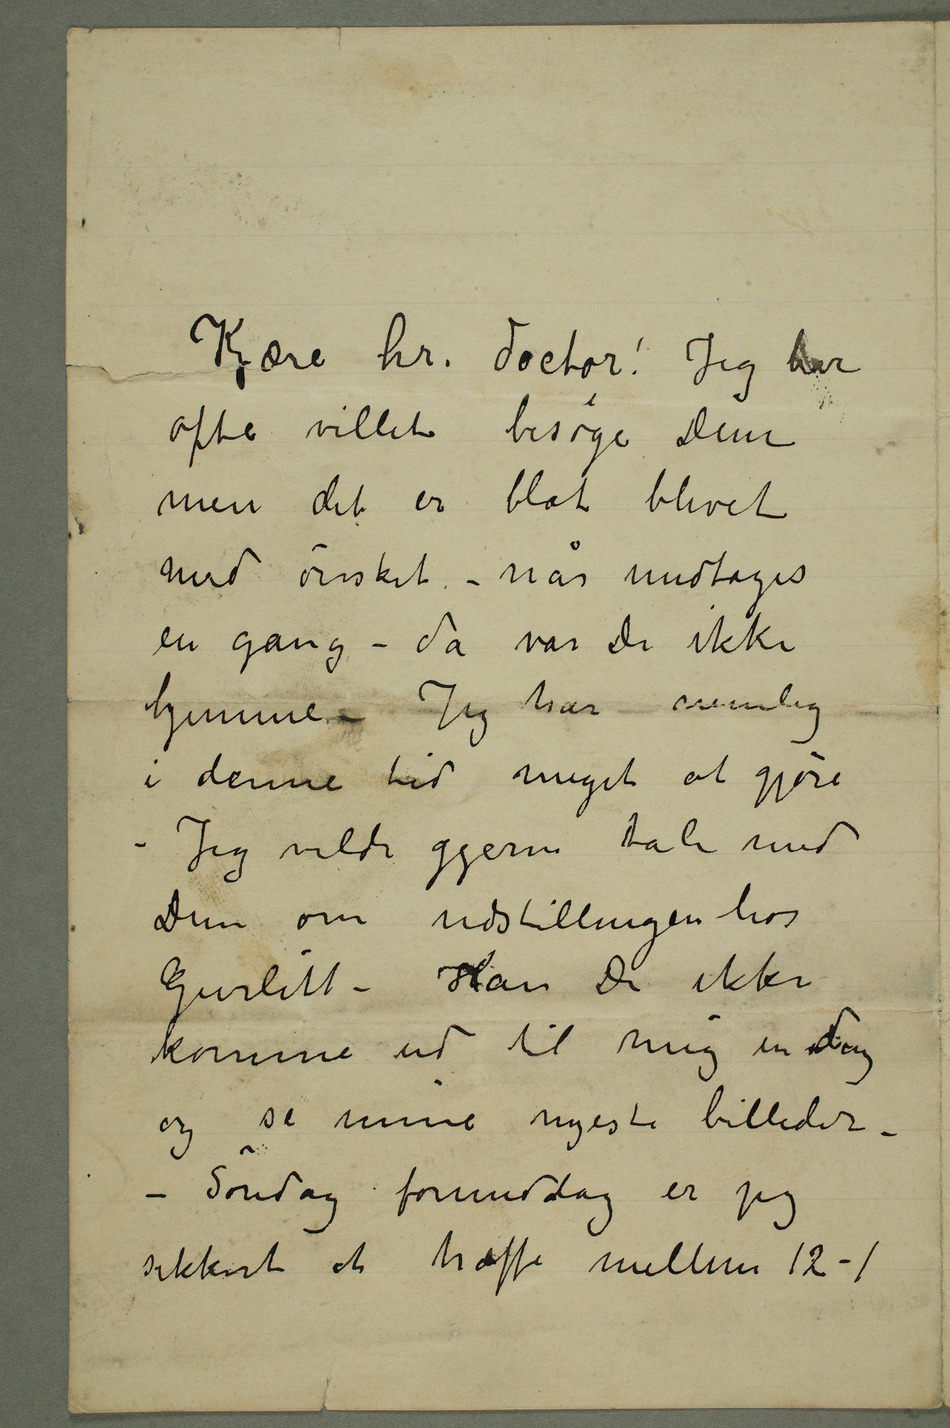 Kjære hr. doctor! Jeg har
ofte villet besøge Dem
men det er blot blevet
med ønsket. – når undtages
en gang – da var De ikke
hjemme. – Jeg har nemlig
i denne tid meget at gjøre
– Jeg vilde gjerne tale med
Dem om udstillingen hos
Gurlitt – Kan De ikke
komme ud til mig en dag
og se mine nyeste billeder –
– Søndag formiddag er jeg
sikkert at træffe mellem 12-1